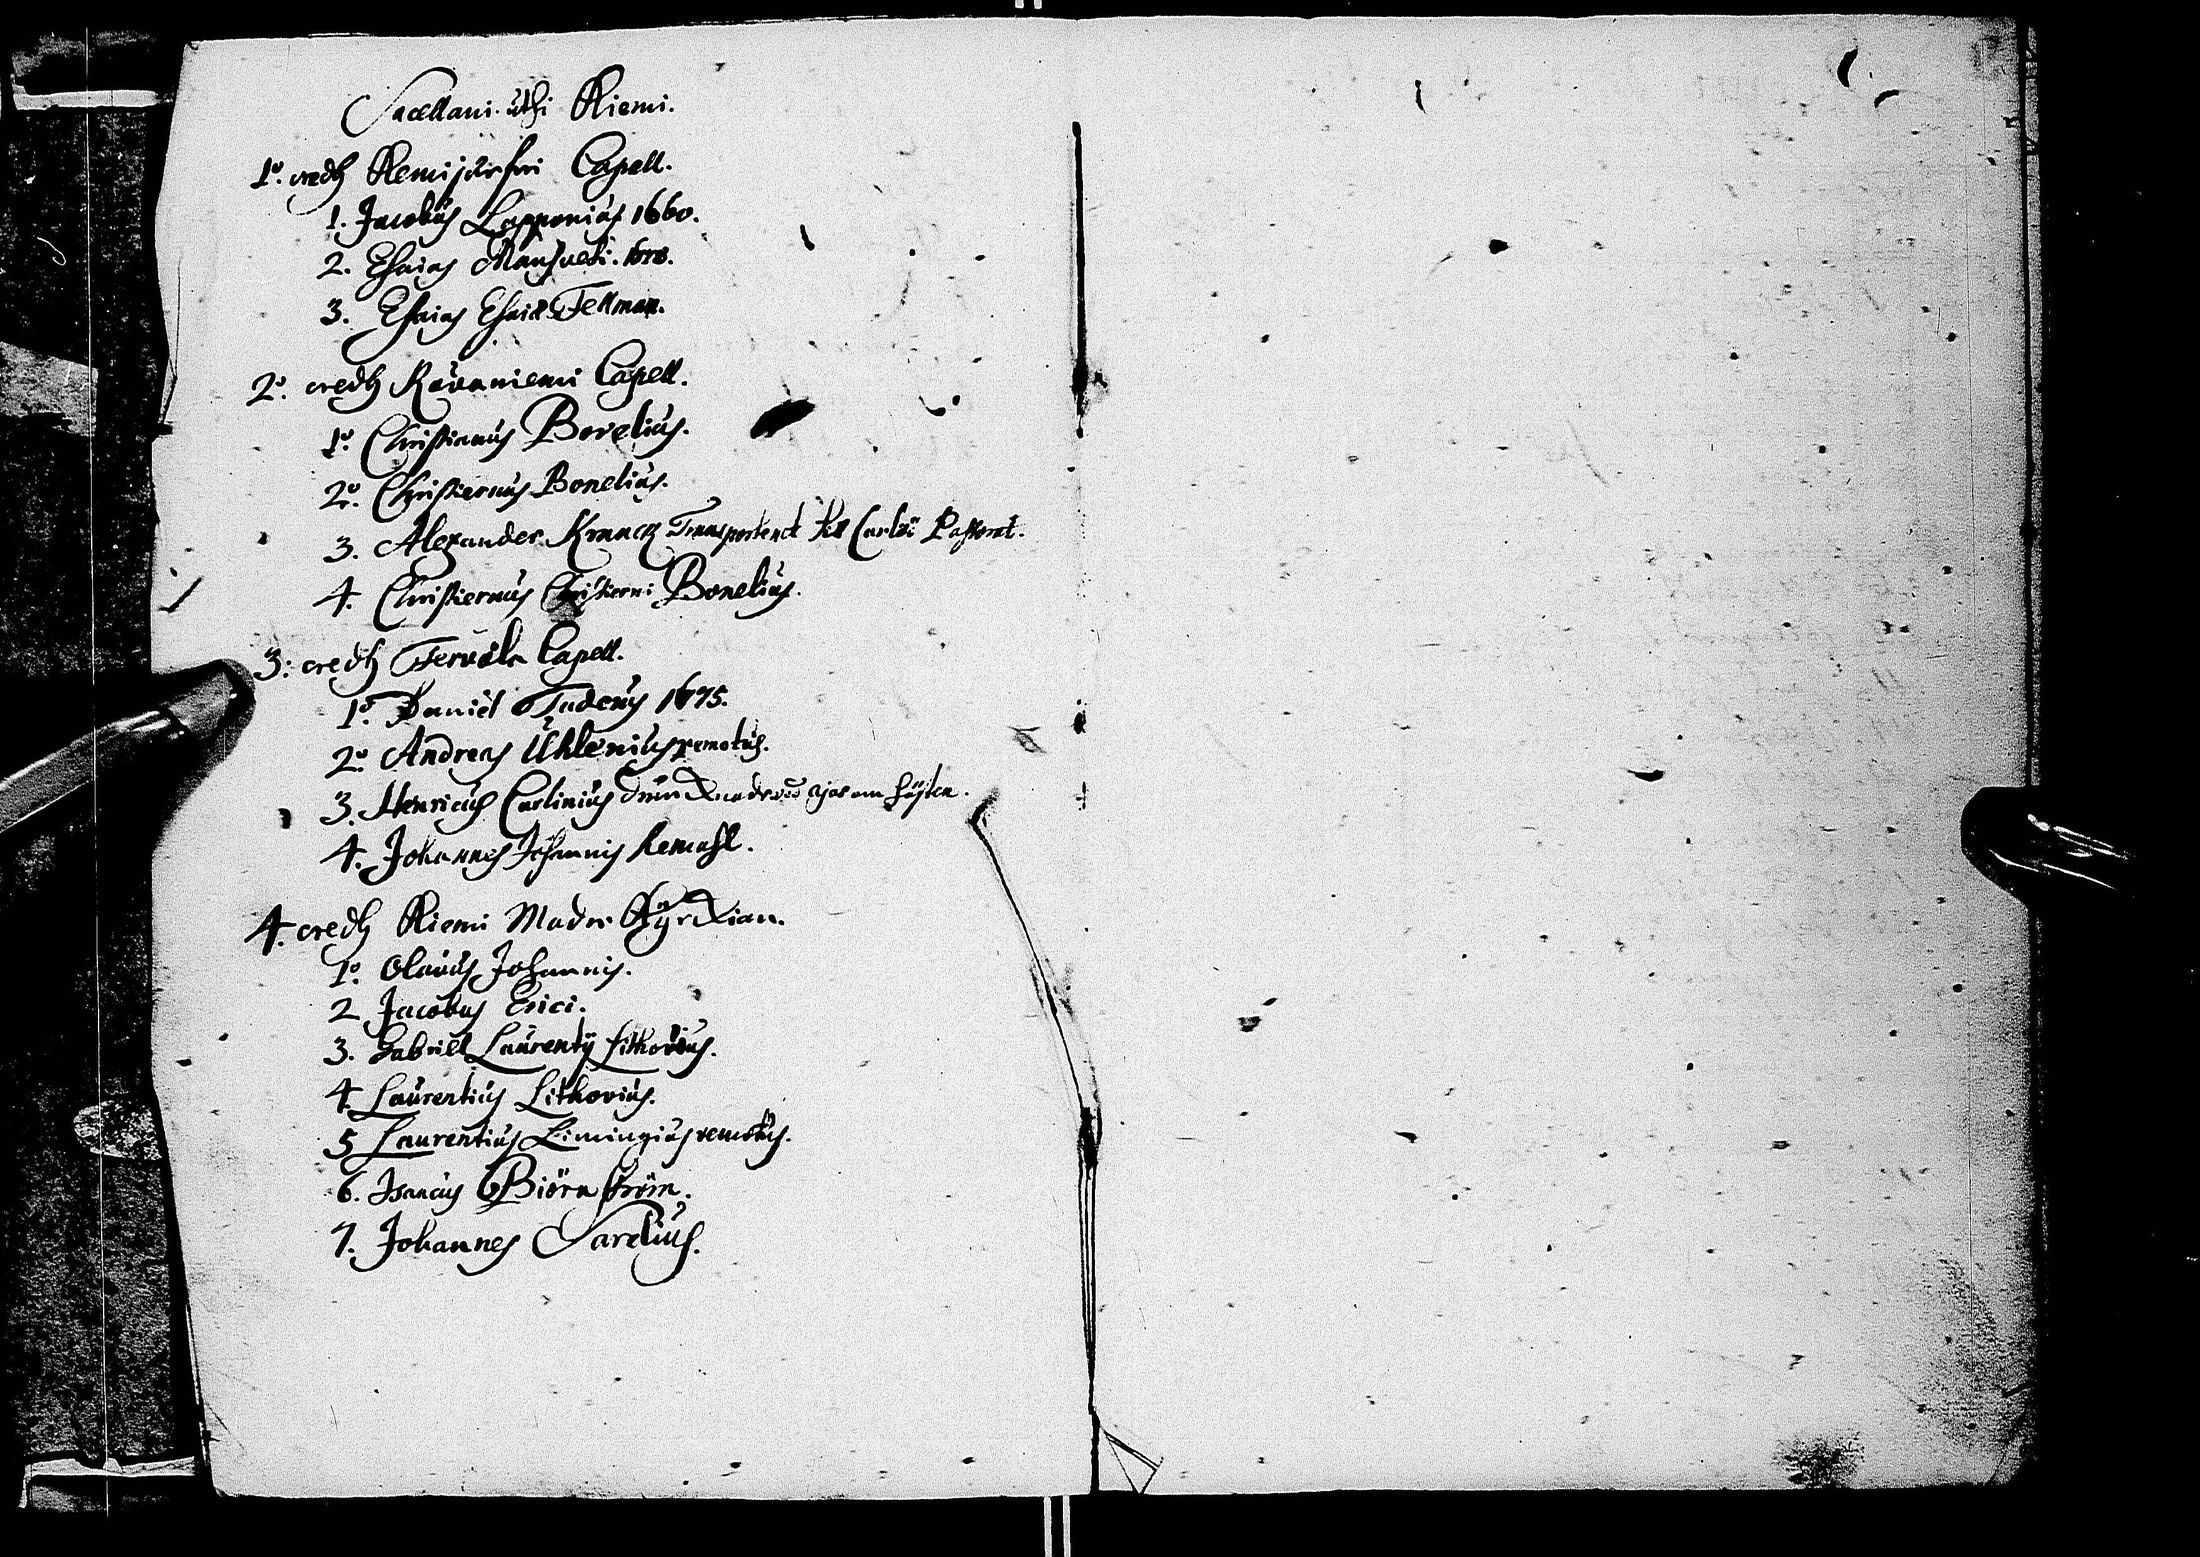 Sacellani uthi Kiemi.
1o. wedh Kemijärfwi Capell.
1. Jacobus Lapponius 1660.
2. Esaias Mansueti. 1678.
3. Esaias Esaiæ Fellman.
2o. wedh Råvaniemi Capell.
1o. Christianus Borelius.
2o. Christiernus Bonelius.
3. Alexander Kranck Transporterat til Carlöö Pastorat.
4. Christiernus Christierni Bonelius.
3: wedh Tervola Capell.
1o. Daniel Tuderus 1675.
2o. Andreas Uhlenius remotus.
3. Henricus Carlinius om hösten.
4. Johannes Johannis Kemahl.
4. wedh Kiemi Moder Kyrckian.
1o. Olaus Johannis.
2 Jacobus Erici.
3. Gabriel Laurentij Lithovius.
4. Laurentius Lithovius.
5 Laurentius Limingius remotus.
6. Isaacus Biörnström.
7. Johannes Sarelius.